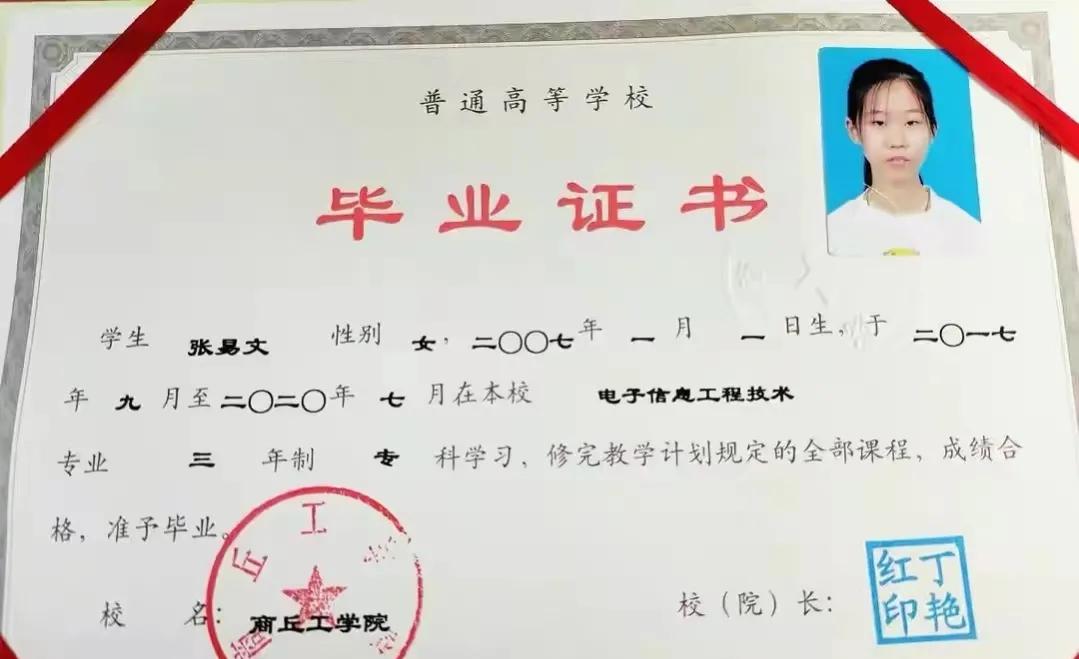 普通高等学校
毕业证书
学生 张易文 性别 女，二〇〇七年 一 月 一 日生，于 二〇一七
年 九 月至二〇二〇年 七 月在本校 电子信息工程技术
专业 三 年制 专 科学习，修完教学计划规定的全部课程，成绩合
格，准予毕业。
丘 工
校 名：商丘工学院
校（院）长：
丁艳红印